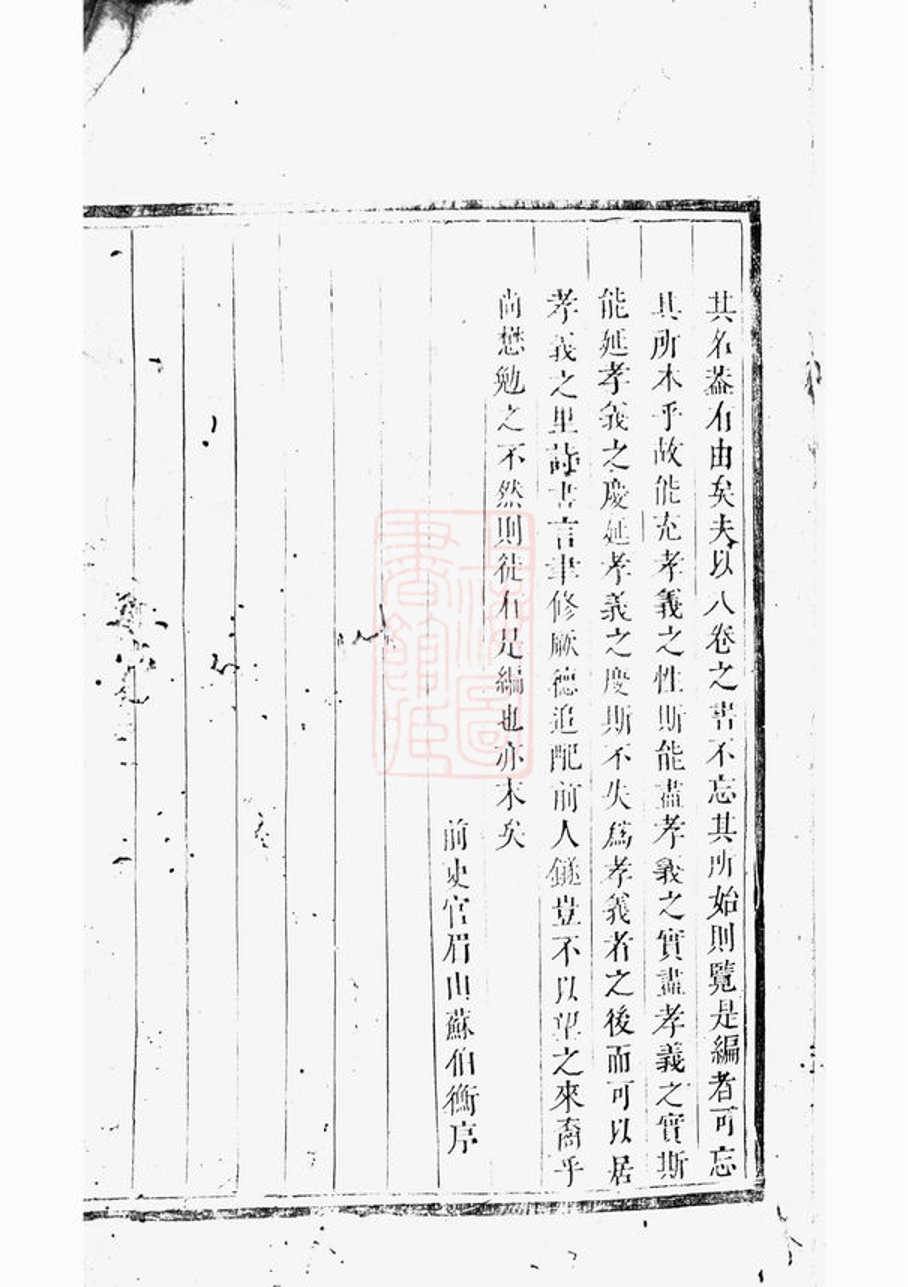 其名葢有由矣夫以八卷之書不忘其所始則覽是編者可忘
其所本乎故能充孝義之性斯能盡孝義之實盡孝義之實斯
能延孝義之慶延孝義之慶斯不失爲孝義者之後而可以居
孝義之里詩書言聿修厥德追配前人鐩豈不以望之來裔乎
尚懋勉之不然則徒有是編也亦末矣
前史官眉山蘇伯衡序
上海圖書館藏